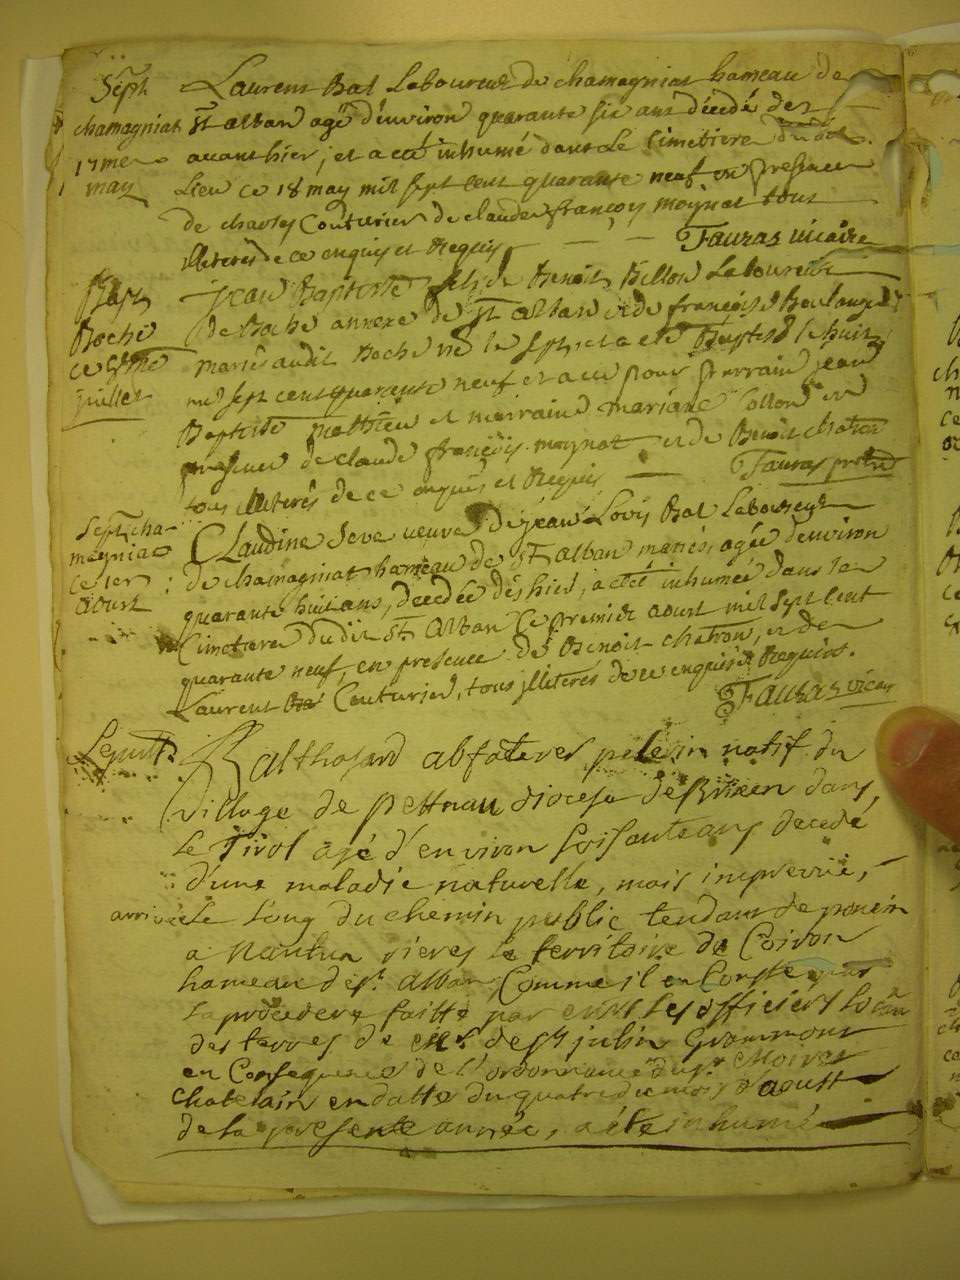 Sept
chamagniat
17me
may
Laurent Bal Laboureur de chamagniat hameau de
st alban agé d'environ quarante six ans décédé des
avant hier, et a eté inhumé dans le Cimetiere dudit
Lieu ce 18 may mil sept cent quarante neuf en presence
de charles Couturier de claude françois moynat tous
illiterés de ce enquis et Requis Fauras vicaire
Bapt
Boche
ce
juillet
jean Baptiste fils de Benoit Billon Laboureur
de Boche annexe de st alban et de françoise Boulanger
mariés audit Boche né le sept et a eté Baptisé le huit
mil sept cent quarante neuf et a eu pour parrain jean
Baptiste Mathieu et marraine mariane Collon en
presence de claude françois moynat et de Benoit chatron
tous illiterés de ce enquis et Requis Fauras
Sept cha-
magniat
ce 1er
aoust
CLaudine Seve veuve de jean Lovis Bal Laboureur
de chamagniat hameau de st alban mariés, agée d'environ
quarante huit ans, decedée dès hier, a eté inhumée dans le
Cimetiere dudit st Alban Ce premier aoust mil sept cent
quarante neuf, en presence de Benoit chatron, et de
Laurent Couturier, tous jlliterés de ce enquis et Requis.
Fauras vicaire
Sepult.
Balthasard abfateres pelerin natif du
village de pettnau diocese de Brixen dans
le Tirol agé d'environ soisante ans decedé
d'une maladie naturelle, mais imprevüe,
arrivée le long du chemin public tendant de poncin
a Nantua rieres le territoire de Coiron
hameau de st. Alban Comme il en Conste par
la procedere faitte par les officiers
des terres de Mr. de st julin Grammont
en Consequence de l'ordonnance du sr. Moiret
Chatelain en datte du quatre du mois d'aoust
de la presente année, a été inhumé